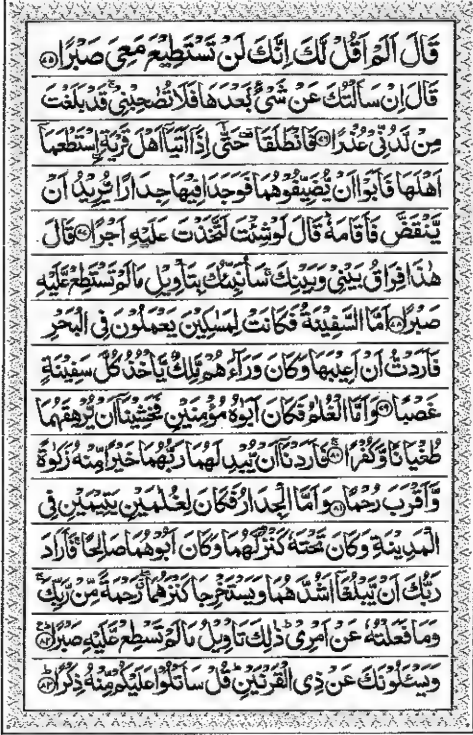 قَالَ اَلَمْ اَقُلْ لَّكَ اِنَّكَ لَنْ تَسْتَطِيْعَ مَعِيَ صَبْرًا ﴿۷۵﴾
قَالَ اِنْ سَاَلْتُكَ عَنْ شَيْءٍۭ بَعْدَهَا فَلَا تُصٰحِبْنِيْ ۚ قَدْ بَلَغْتَ
مِنْ لَّدُنِّيْ عُذْرًا ﴿۷۶﴾ فَانْطَلَقَا ۥ حَتّٰۤى اِذَاۤ اَتَيَاۤ اَهْلَ قَرْيَةِ ِۨاسْتَطْعَمَاۤ
اَهْلَهَا فَاَبَوْا اَنْ يُّضَيِّفُوْهُمَا فَوَجَدَا فِيْهَا جِدَارًا يُّرِيْدُ اَنْ
يَّنْقَضَّ فَاَقَامَهٗ ؕ قَالَ لَوْ شِئْتَ لَتَّخَذْتَ عَلَيْهِ اَجْرًا ﴿۷۷﴾ قَالَ
هٰذَا فِرَاقُ بَيْنِيْ وَبَيْنِكَ ۚ سَاُنَبِّئُكَ بِتَاْوِيْلِ مَا لَمْ تَسْتَطِعْ عَّلَيْهِ
صَبْرًا ﴿۷۸﴾ اَمَّا السَّفِيْنَةُ فَكَانَتْ لِمَسٰكِيْنَ يَعْمَلُوْنَ فِي الْبَحْرِ
فَاَرَدْتُّ اَنْ اَعِيْبَهَا وَكَانَ وَرَآءَهُمْ مَّلِكٌ يَّاْخُذُ كُلَّ سَفِيْنَةٍ
غَصْبًا ﴿۷۹﴾ وَاَمَّا الْغُلٰمُ فَكَانَ اَبَوٰهُ مُؤْمِنَيْنِ فَخَشِيْنَاۤ اَنْ يُّرْهِقَهُمَا
طُغْيَانًا وَّكُفْرًا ﴿۸۰﴾ فَاَرَدْنَاۤ اَنْ يُّبْدِلَهُمَا رَبُّهُمَا خَيْرًا مِّنْهُ زَكٰوةً
وَّاَقْرَبَ رُحْمًا ﴿۸۱﴾ وَاَمَّا الْجِدَارُ فَكَانَ لِغُلٰمَيْنِ يَتِيْمَيْنِ فِي
الْمَدِيْنَةِ وَكَانَ تَحْتَهٗ كَنْزٌ لَّهُمَا وَكَانَ اَبُوْهُمَا صَالِحًا ۚ فَاَرَادَ
رَبُّكَ اَنْ يَّبْلُغَاۤ اَشُدَّهُمَا وَيَسْتَخْرِجَا كَنْزَهُمَا ۖ رَحْمَةً مِّنْ رَّبِّكَ ۚ
وَمَا فَعَلْتُهٗ عَنْ اَمْرِيْ ؕ ذٰلِكَ تَاْوِيْلُ مَا لَمْ تَسْطِعْ عَّلَيْهِ صَبْرًا ﴿۸۲﴾
وَيَسْـَٔلُوْنَكَ عَنْ ذِي الْقَرْنَيْنِ ؕ قُلْ سَاَتْلُوْا عَلَيْكُمْ مِّنْهُ ذِكْرًا ﴿۸۳﴾